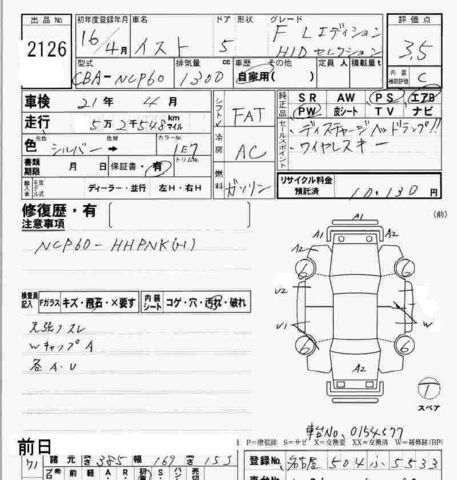 出品No 2126
初年度登録年月 16/4月 車名 イスト ドア 5 形状 グレード F Lエディション HIDセレクション 評価点 3.5
型式 CBA-NCP60 排気量 1300 cc 車歴 自家用( ) その他 定員 人 積載量 t 内装補助評価 C
車検 21年 4月
走行 5万2千548 km マイル
色 シルバー カラーNo 1E7
元色 現色 トリムNo
書類期限 月 日 保証書・有
輸入 モデル年式 ディーラー・並行 左H・右H
シフト FAT
冷房 AC
燃料 ガソリン
純正品 SR AW PS エアB
PW 皮シート TV ナビ
セールスポイント
・ディスチャージヘッドランプ!!
・ワイヤレスキー
リサイクル料金預託済 10,130 円
修復歴・有
注意事項
NCP60-HHPNK(H)
検査員記入 Fガラス キズ・飛石・×要す 内装シート コゲ・穴・汚れ・破れ
WキャップA
各A・U
(前)
A1
A1
A2
A2
U2
U1
W
A2
スペア
車台No. 0154577
P=塗装跡 S=サビ X=交換要 XX=交換済 W=補修跡(BP)
前日
諸元 長さ 385 幅 169 高さ 153
登録No. 名古屋 504 ふ 5533